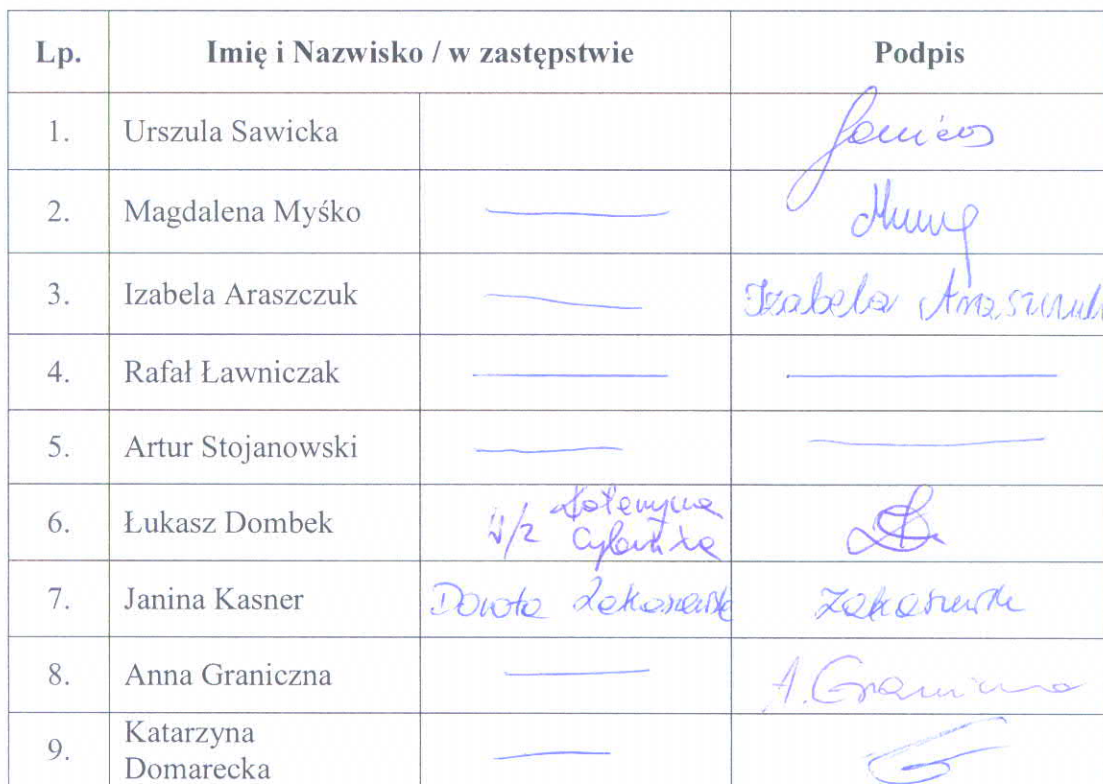 Lp. Imię i Nazwisko / w zastępstwie Podpis
1. Urszula Sawicka
2. Magdalena Myśko
3. Izabela Araszczuk Izabela Araszczuk
4. Rafał Ławniczak
5. Artur Stojanowski
6. Łukasz Dombek
7. Janina Kasner Dorota
8. Anna Graniczna A. Graniczna
9. Katarzyna
Domarecka